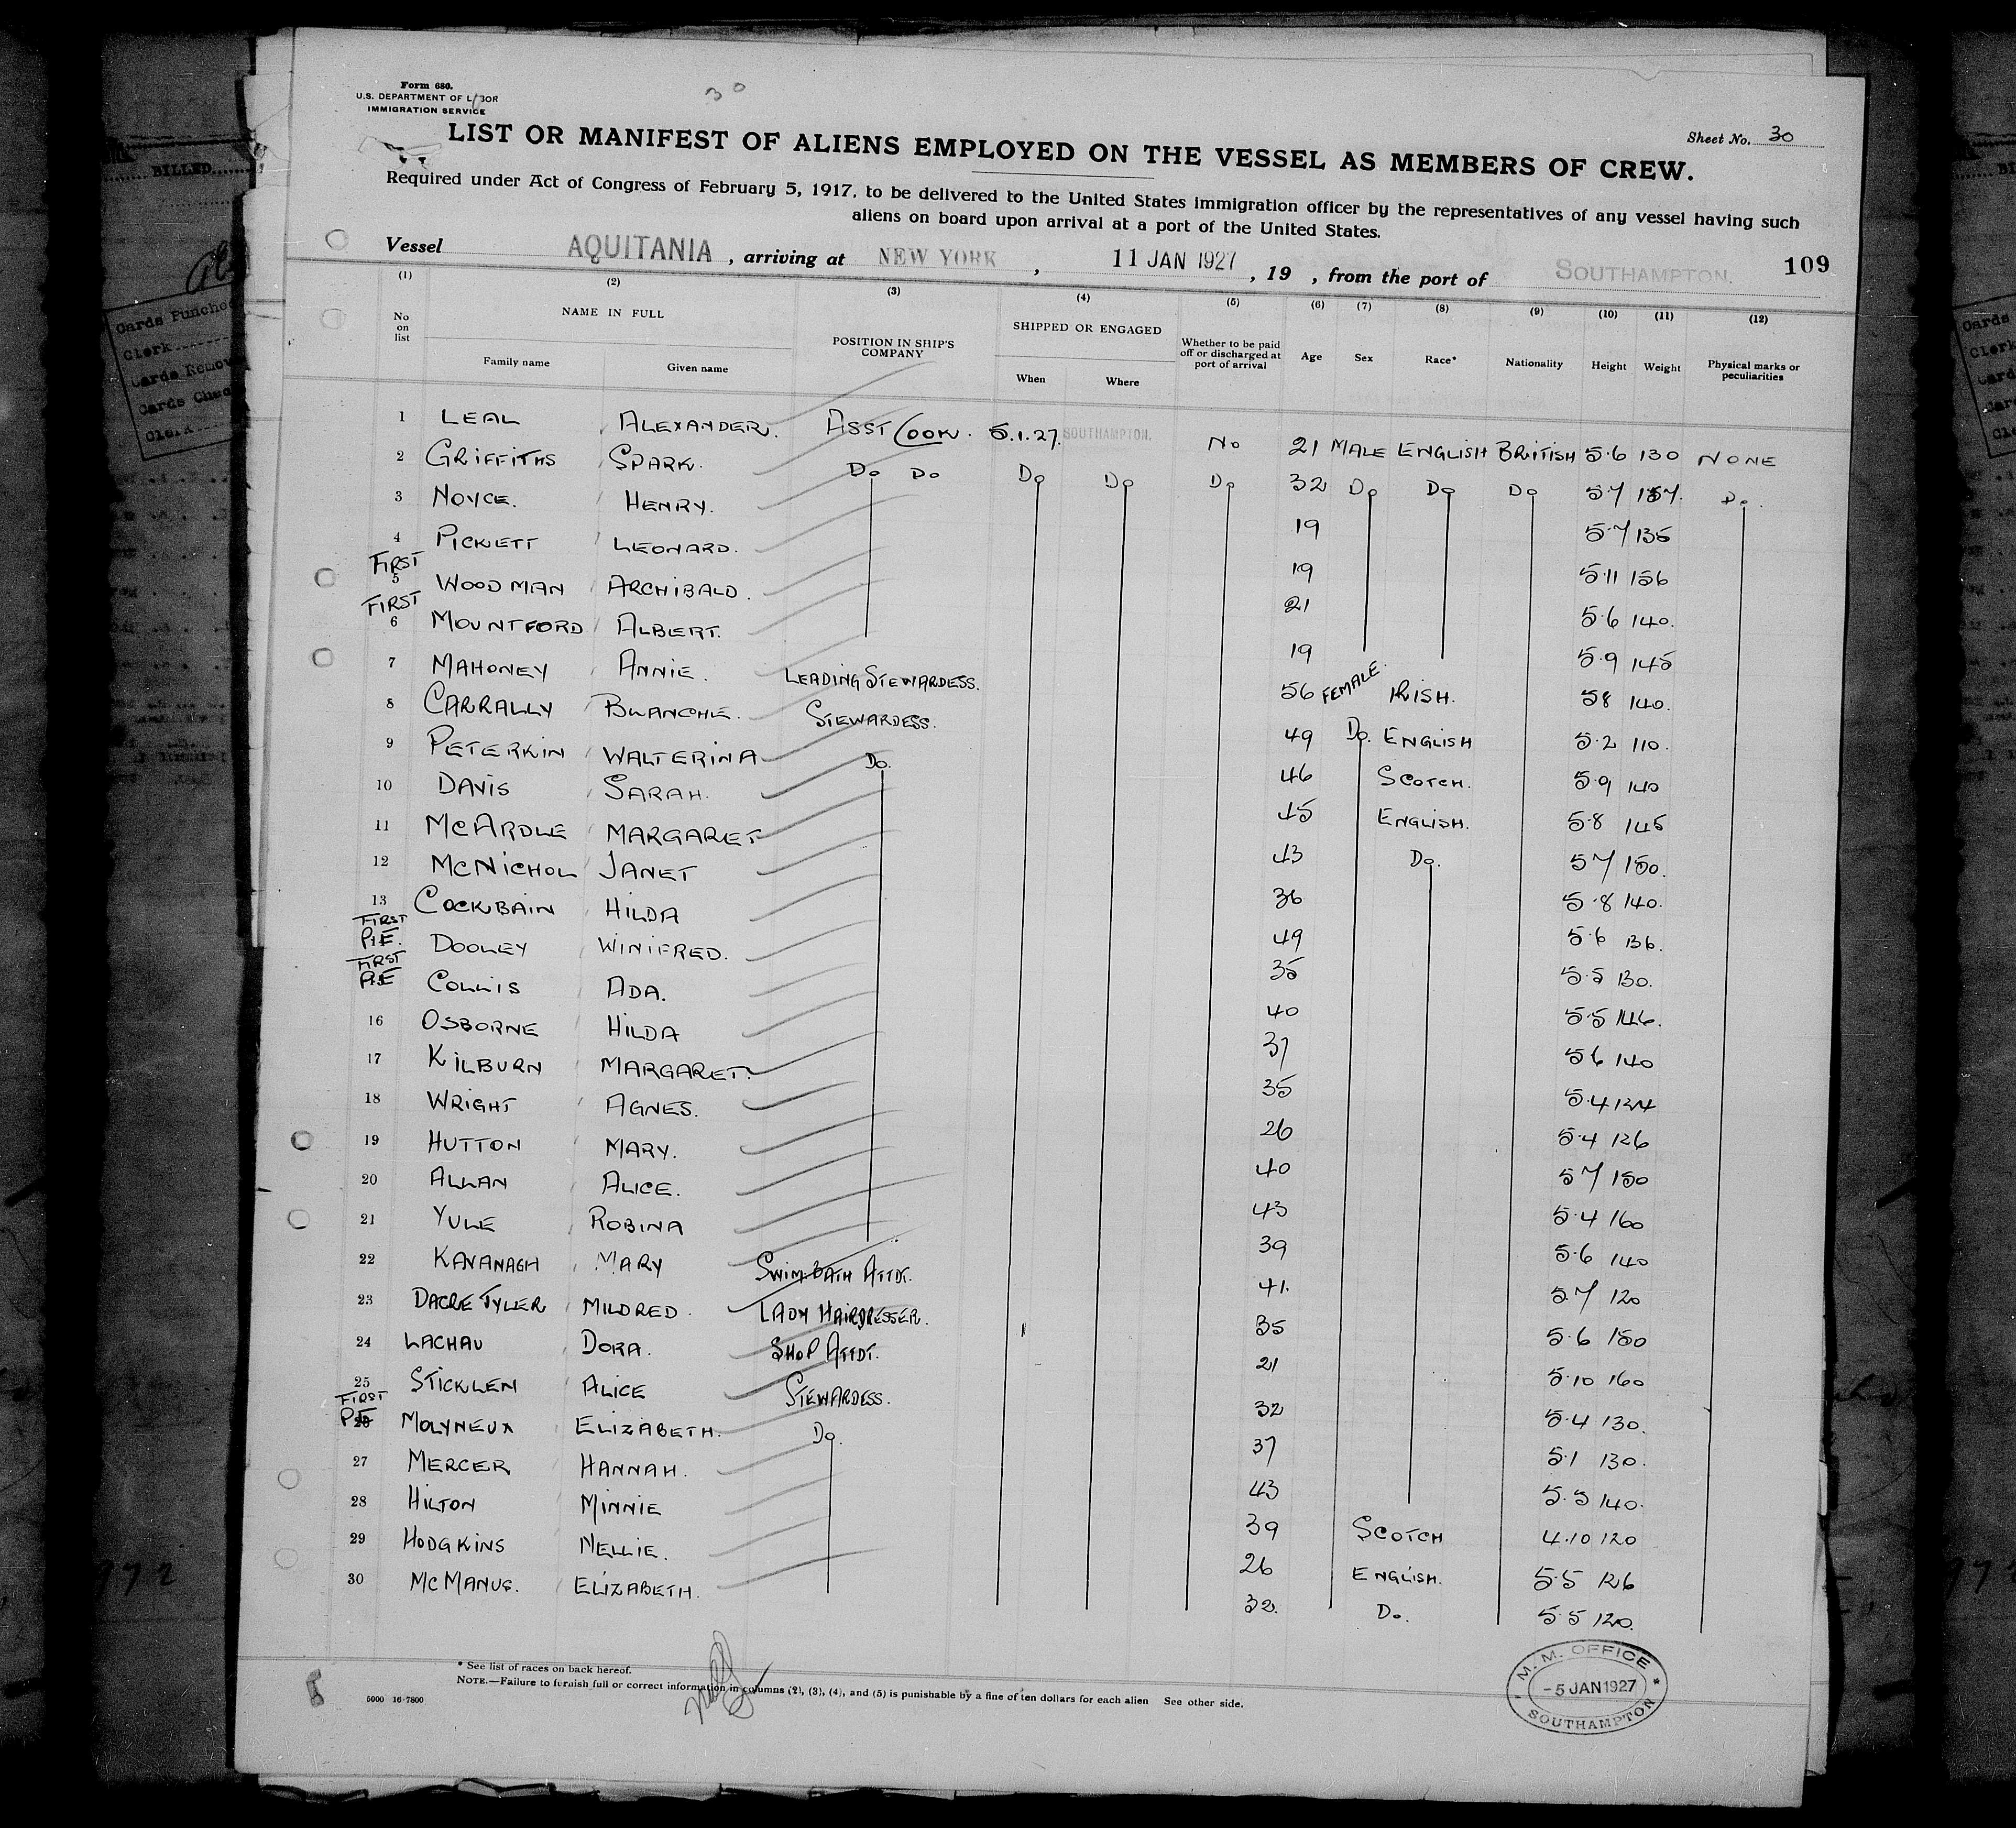 Form 680.
U.S. DEPARTMENT OF LABOR
IMMIGRATION SERVICE
30
Sheet No. 30
LIST OR MANIFEST OF ALIENS EMPLOYED ON THE VESSEL AS MEMBERS OF CREW.
Required under Act of Congress of February 5, 1917, to be delivered to the United States immigration officer by the representatives of any vessel having such
aliens on board upon arrival at a port of the United States.
Vessel AQUITANIA, arriving at NEW YORK, 11 JAN 1927, 19 , from the port of SOUTHAMPTON. 109
(1) (2) (3) (4) (5) (6) (7) (8) (9) (10) (11) (12)
No on list NAME IN FULL Family name Given name POSITION IN SHIP'S COMPANY SHIPPED OR ENGAGED When Where Whether to be paid off or discharged at port of arrival Age Sex Race* Nationality Height Weight Physical marks or peculiarities
1 LEAL ALEXANDER. ASST COOK. 5.1.27. SOUTHAMPTON. No 21 MALE ENGLISH BRITISH 5.6 130 NONE
2 GRIFFITHS SPARK. Do Do Do Do Do 32 Do Do Do 5.7 157. Do.
3 NOYCE. HENRY. 19 5.7 135
4 PICKETT LEONARD. 19 5.11 156
FIRST 5 WOODMAN ARCHIBALD. 21 5.6 140.
FIRST 6 MOUNTFORD ALBERT. 19 5.9 145
7 MAHONEY ANNIE. LEADING STEWARDESS. 56 FEMALE. IRISH. 58 140.
8 CARRALLY BLANCHE. STEWARDESS. 49 Do. ENGLISH 5.2 110.
9 PETERKIN WALTERINA Do. 46 SCOTCH. 5.9 140
10 DAVIS SARAH. 45 ENGLISH. 5.8 145
11 MCARDLE MARGARET 43 Do. 57 150.
12 MCNICHOL JANET 36 5.8 140.
13 COCKBAIN HILDA 49 5.6 136.
FIRST P.E. DOOLEY WINIFRED. 35 5.5 130.
FIRST P.E COLLIS ADA. 40 5.5 146.
16 OSBORNE HILDA 37 56 140
17 KILBURN MARGARET. 35 5.4 124
18 WRIGHT AGNES. 26 5.4 126
19 HUTTON MARY. 40 57 150
20 ALLAN ALICE. 43 5.4 160
21 YULE ROBINA 39 5.6 140
22 KAVANAGH MARY SWIM. BATH ATTDT. 41. 5.7 120
23 DACRE TYLER MILDRED. LADY HAIRDRESSER. 35 5.6 150
24 LACHAU DORA. SHOP ATTDT. 21 5.10 160
25 STICKLEN ALICE STEWARDESS. 32 5.4 130.
FIRST P.E 26 MOLYNEUX ELIZABETH. Do. 37 5.1 130.
27 MERCER HANNAH. 43 5.5 140.
28 HILTON MINNIE 39 SCOTCH 4.10 120
29 HODGKINS NELLIE. 26 ENGLISH. 5.5 126
30 MCMANUS. ELIZABETH. 32. Do. 5.5 120.
* See list of races on back hereof.
NOTE.—Failure to furnish full or correct information in columns (2), (3), (4), and (5) is punishable by a fine of ten dollars for each alien See other side.
5000 16-7800
M. M. OFFICE
-5 JAN 1927
SOUTHAMPTON
BILLED
Cards Punched
Clerk
Cards Remov
Cards Chec
Clerk